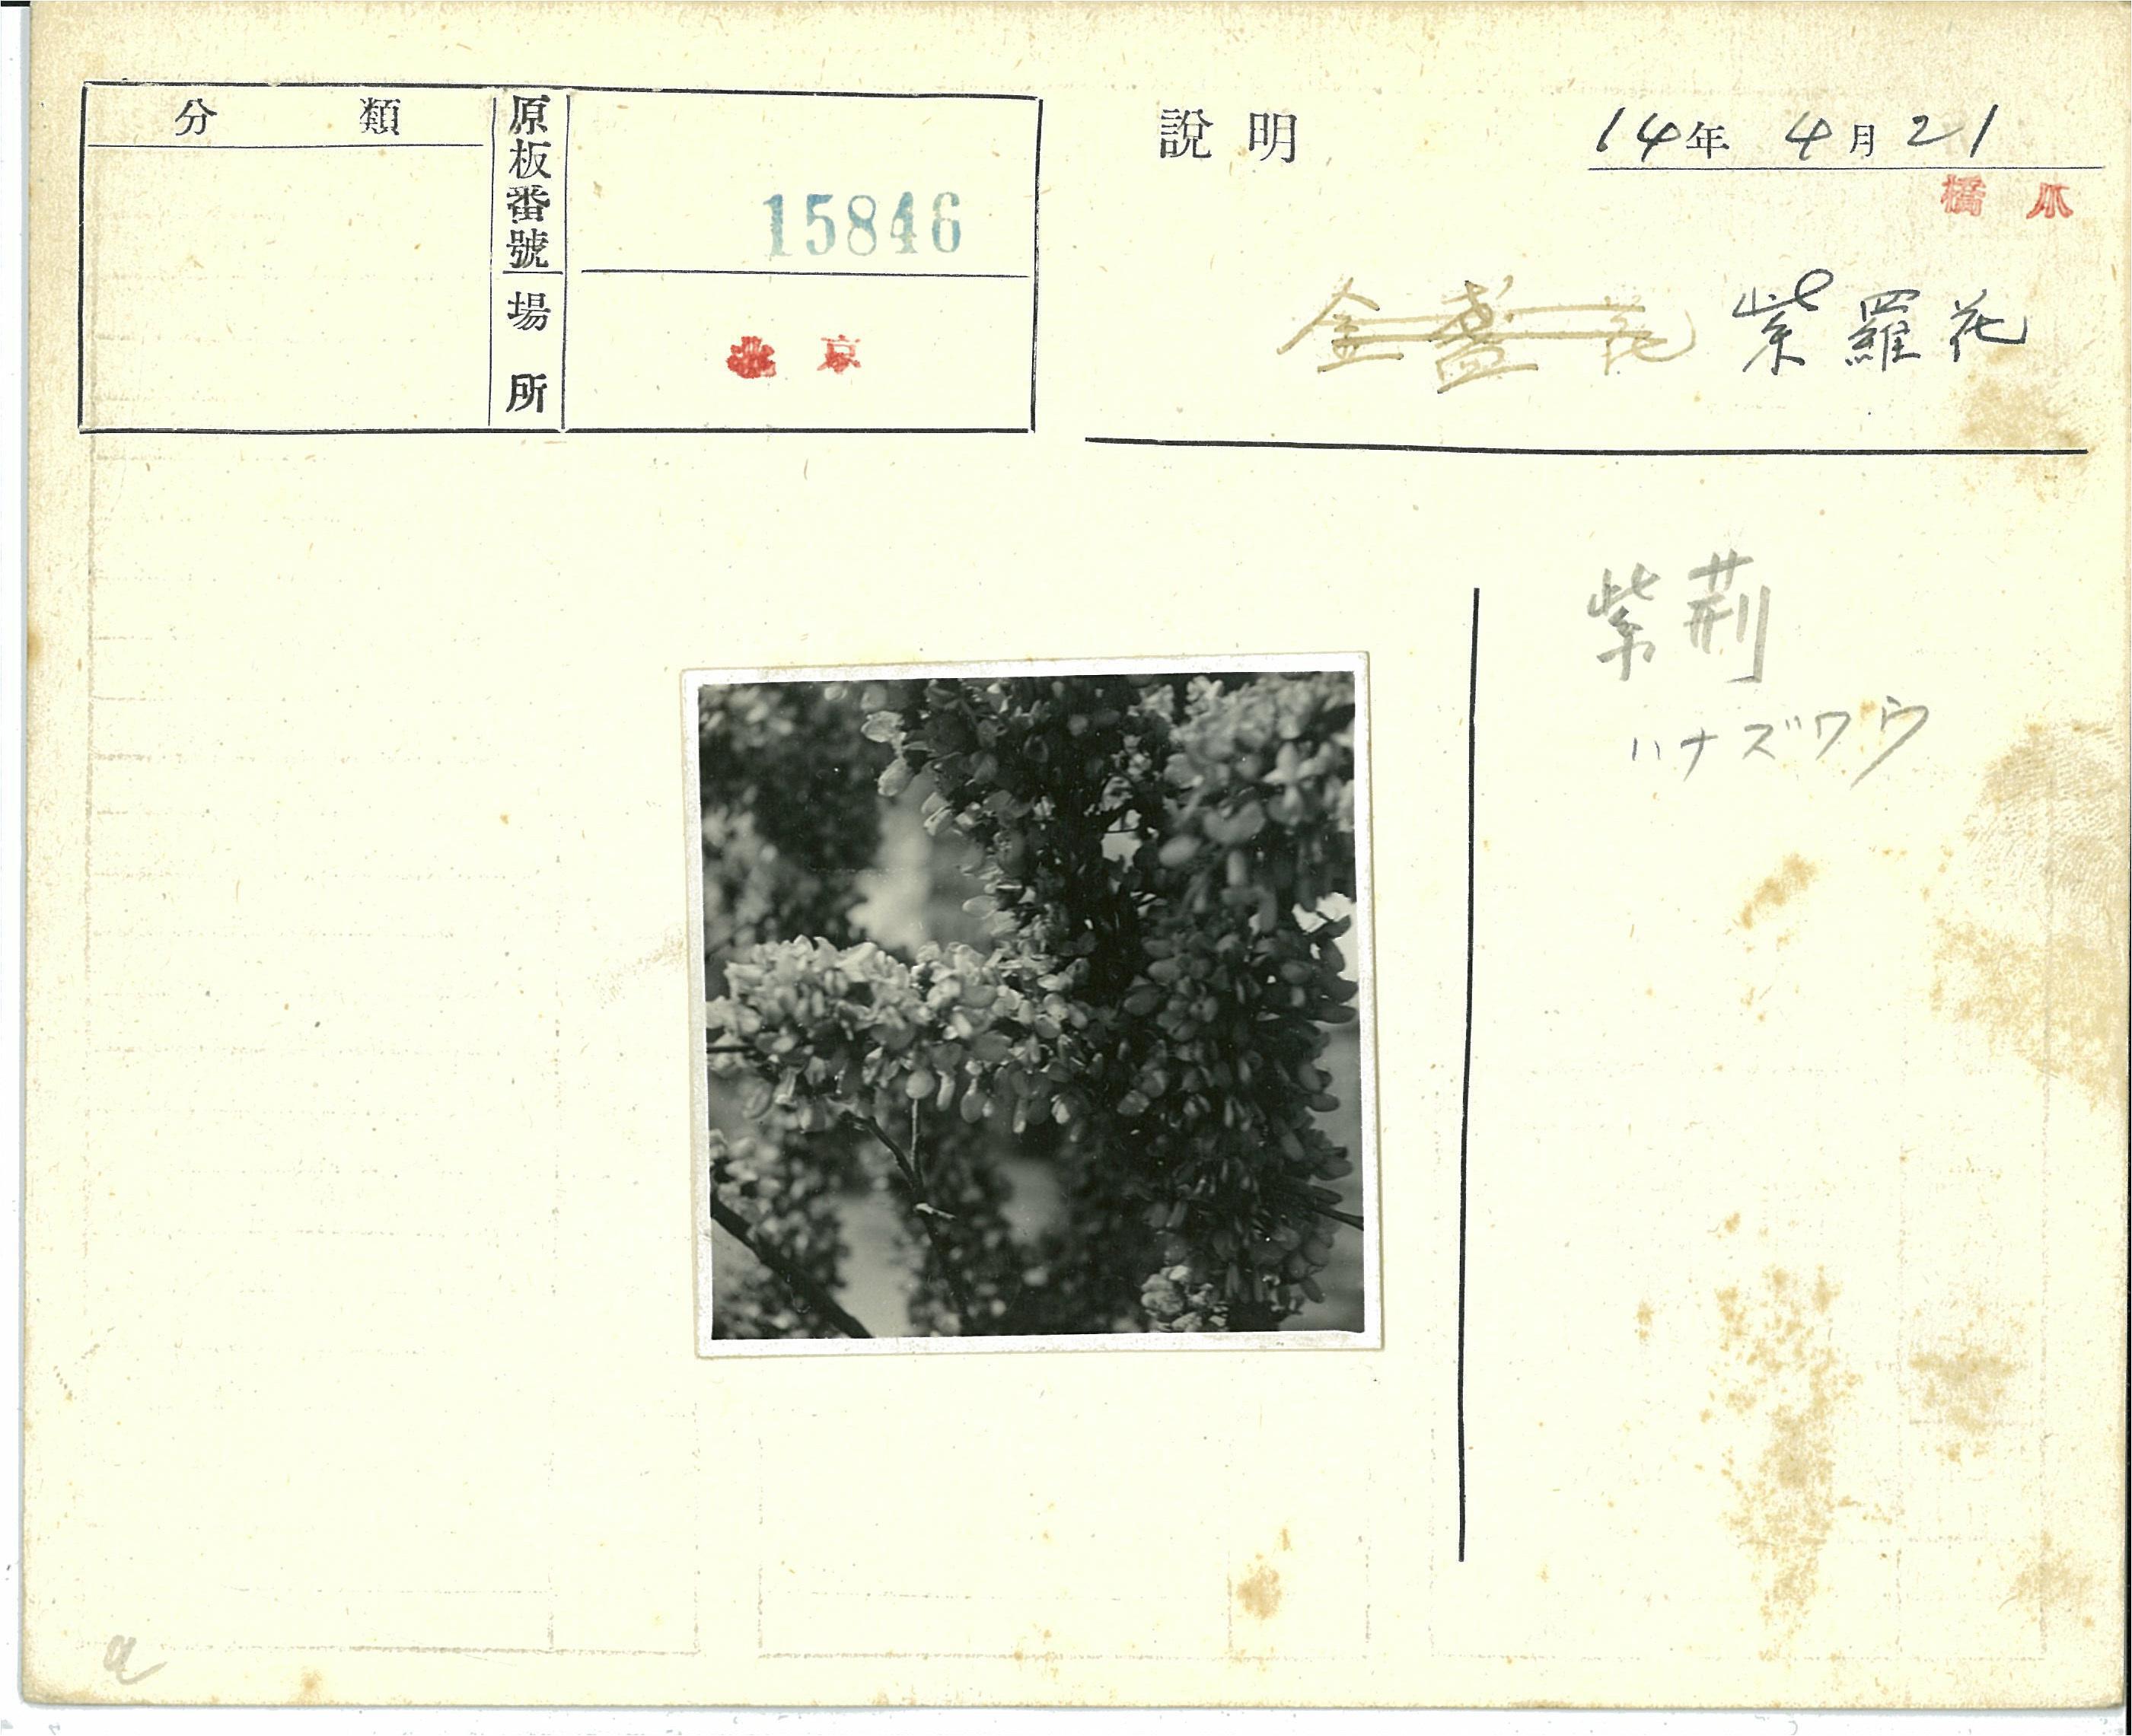 分類
原板番號
15846
場所
北京
説明
14年 4月21
橋爪
金盞花 紫羅花
紫荊
ハナズワウ
a